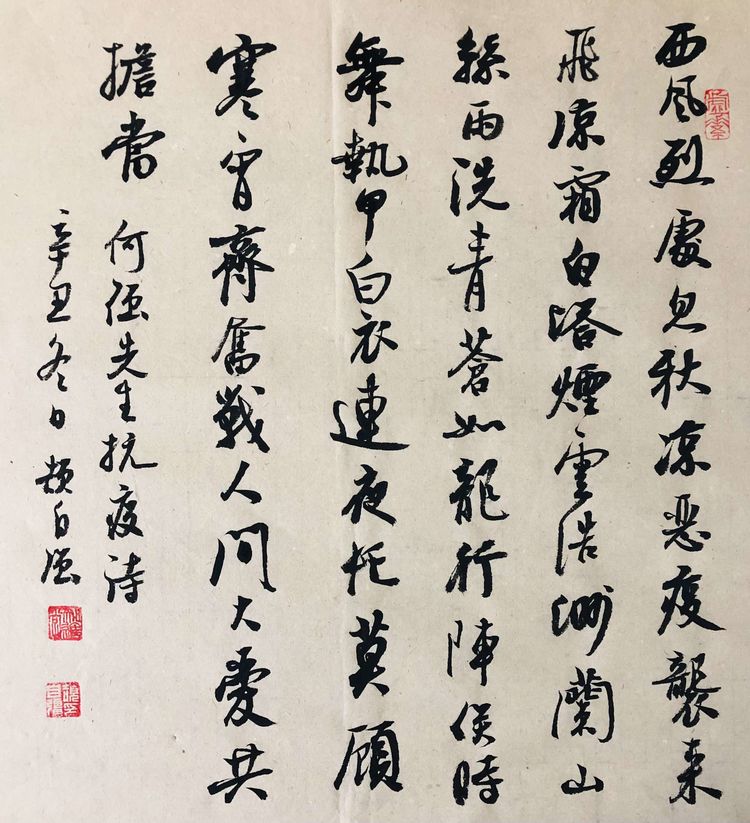 西風烈處忽秋凉惡疫襲来
飛凉霜白塔煙雲浩渺蘭山
絲雨洗青蒼如龍行陣候時
舞執甲白衣連夜忙莫顧
寒宵齊奮戰人間大愛共
擔當 何强先生抗疫詩
辛丑冬日 自强